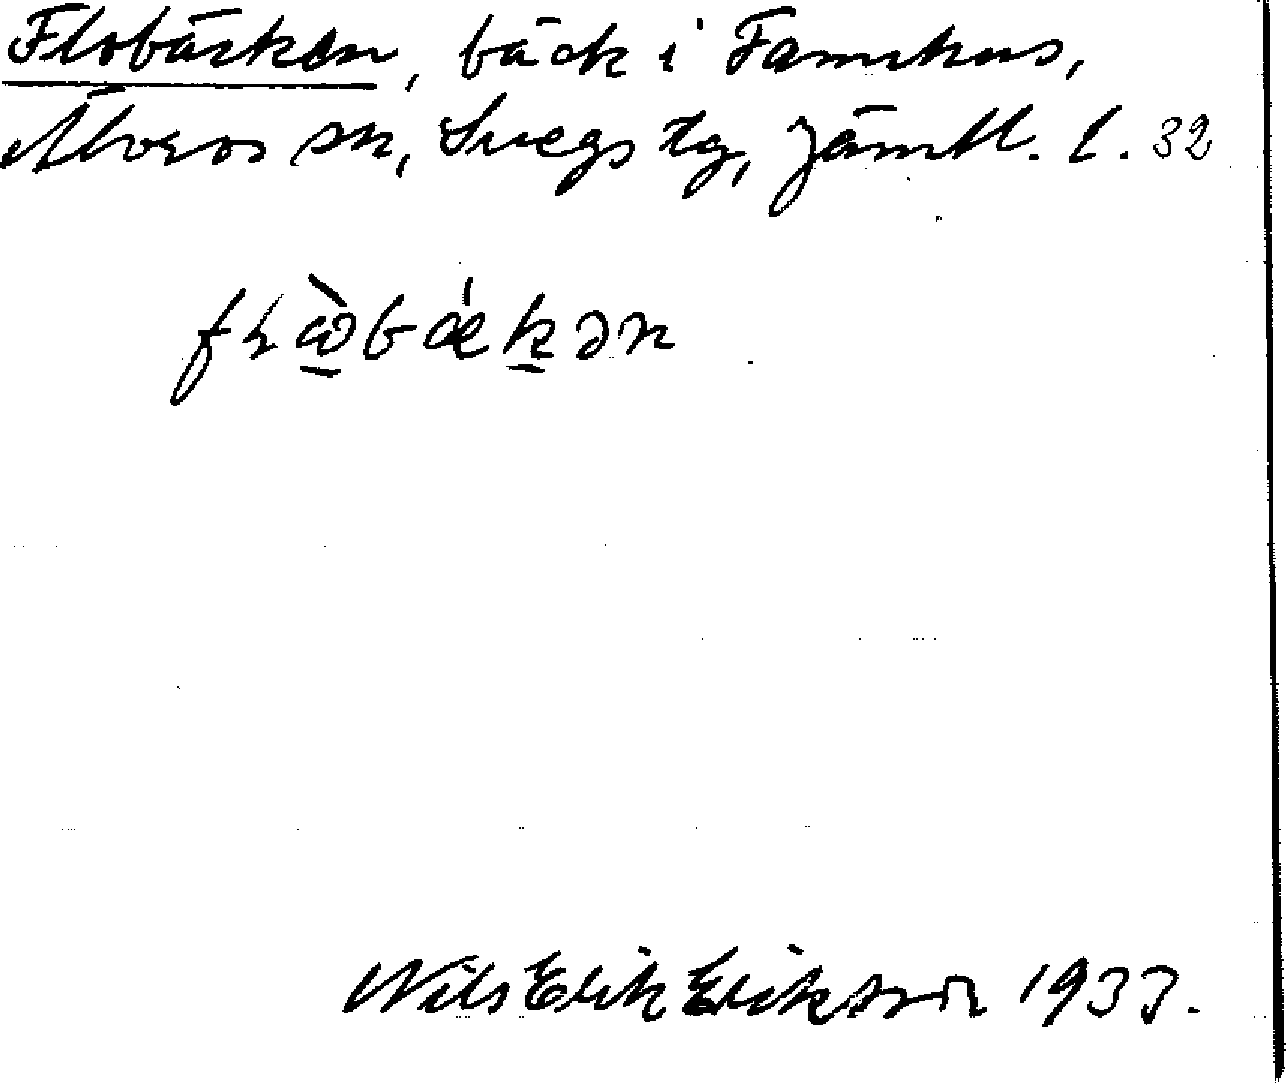 Flobäcken, bäck i Fannhus,
Älvros sn, Svegs tg, Jämtl. l. 32
Nils Erik Eriksson 1933.